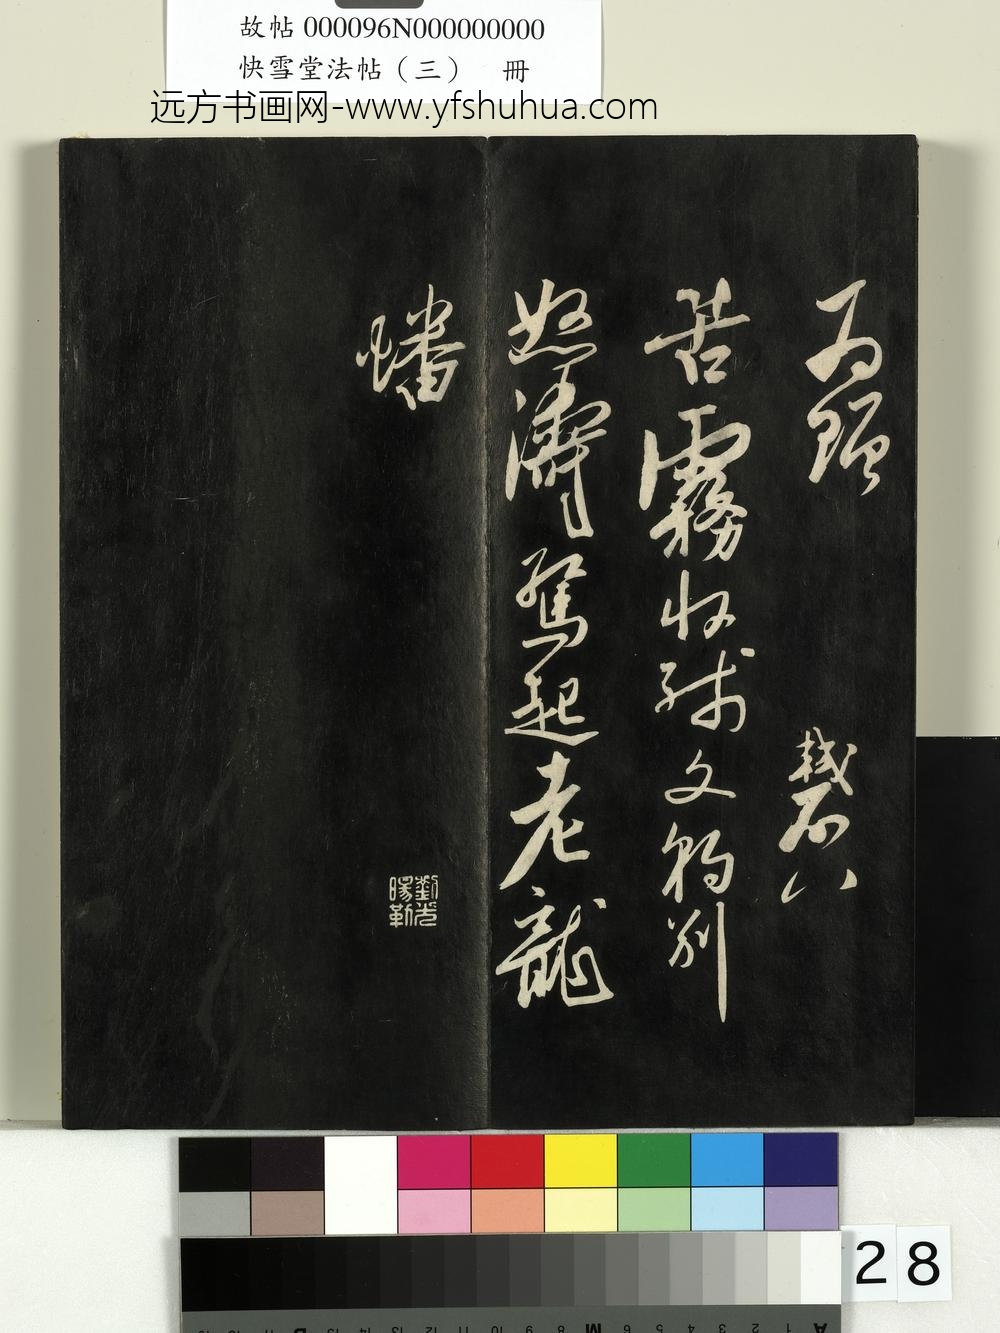 故帖 000096N000000000
快雪堂法帖（三） 冊
远方书画网-www.yfshuhua.com
為贈
苦霧收殘文豹別
怒濤驚起老龍
蟠
劉光
暘勒
28